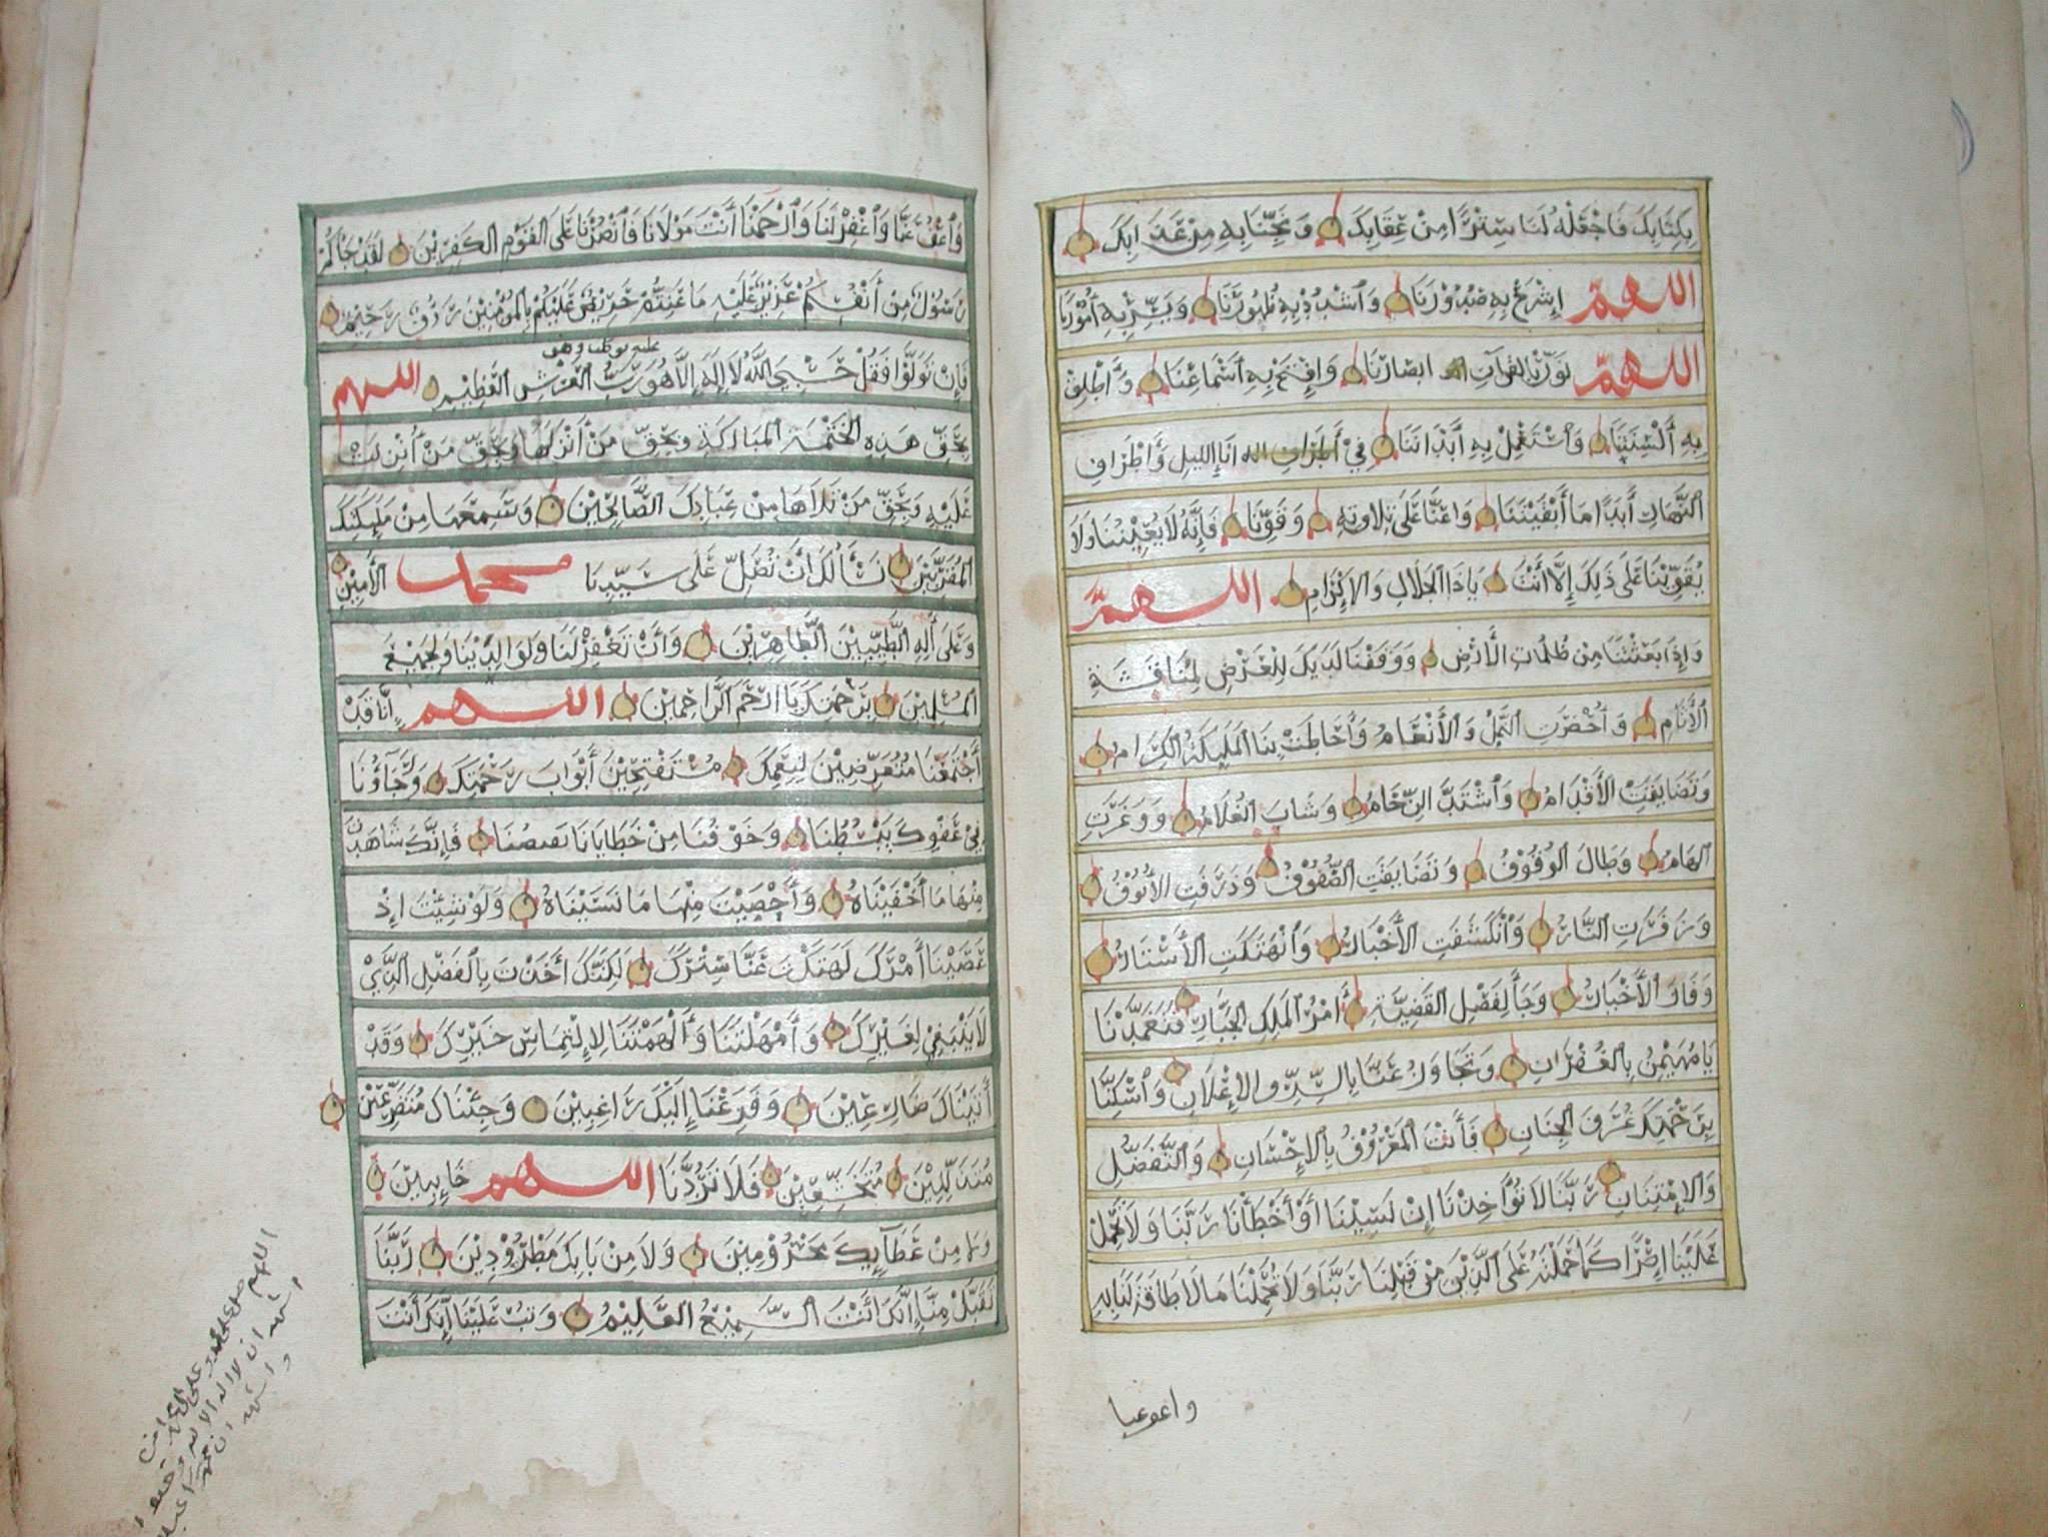 بِكِتَابِكَ فَاجْعَلْهُ لَنَا سِتْرًا مِنْ عِقَابِكَ وَنَجِّنَا بِهِ مِنْ عَذَابِكَ
اللهمّ إِشْرَحْ بِهِ صُدُوْرَنَا وَاَشْدُدْ بِهِ ظُهُوْرَنَا وَيَسِّرْ بِهِ أُمُوْرَنَا
اللهمّ نَوِّرْ بِالقُرآنِ ابصَارَنَا وَافْتَحْ بِهِ اَسْمَاعِنَا وَاَطْلِقْ
بِهِ أَلْسِنَتِنَا وَاَسْتَعْمِلْ بِهِ أَبْدَانَنَا فِيْ انَاءَ الليلِ وَاَطْرَافِ
النَّهَارِ أَبَدًا مَا أَبْقَيْتَنَا وَاعِنَّا عَلَى تِلاَوتِهِ وَقَوِّنَا فَإِنَّهُ لَا يُعِيْنُنَا وَلَا
يُقَوِّيْنَا عَلَى ذَلِكَ إِلَّا أَنْتَ يَاذَا الجَلَالِ وَالإِكْرَامِ اللهمّ
وَإِذَا بَعَثْتَنَا مِنْ ظُلُمَاتِ الأَرْضِ وَوَقَفْنَا لَدَيْكَ لِلْعَرْضِ لِمُنَاقَشَةِ
الأَنَامِ وَاُحْضِرَتِ النَّمْلُ وَالأَنْعَامُ وَأَحَاطَتْ بِنَا المَلَيِكَةُ الكِرَامُ
وَتَضَايَقَتِ الأَقْدَامُ وَاَشْتَدَّ الزِّحَامُ وَشَابَ الغُلَامُ وَوَعَرَتِ
الهَامُ وَطَالَ الوُقُوْفُ وَتَضَايَقَتِ الصُّفُوْفُ وَذَرَفَتِ الأُنُوْفُ
وَزَفَرَتِ النَّارُ وَاَنْكَشَفَتِ الأَخْبَارُ وَاَنْهَتَكَتِ الأَسْتَارُ
وَفَازَ الأَخْيَارُ وَجَاءَ لِفَصْلِ القَضِيَّةِ أَمْرُ المَلِكِ الجَبَّارِ فَتَغَمَّدْنَا
يَا مُهَيْمِنُ بِالغُفْرَانِ وَتَجَاوَزْ عَنَّا بِالسِّرِّ وَالإِعْلَانِ وَاَسْكِنَّا
بِرَحْمَتِكَ غُرَفَ الجِنَانِ فَأَنْتَ المَعْرُوْفُ بِالإِحْسَانِ وَالتَّفَضُّلِ
وَالإِمْتِنَانِ رَبَّنَا لَا تُؤَاخِذْنَا إِنْ نَسِيْنَا أَوْ أَخْطَأْنَا رَبَّنَا وَلَا تَحْمِلْ
عَلَيْنَا اِصْرًا كَمَا حَمَلْتَهُ عَلَى الَّذِيْنَ مِنْ قَبْلِنَا رَبَّنَا وَلَا تُحَمِّلْنَا مَالَا طَاقَةَ لَنَا بِهِ
واعوعنا
وَاَعْفُ عَنَّا وَاَغْفِرْ لَنَا وَاَرْحَمْنَا أَنْتَ مَوْلَانَا فَاَنْصُرْنَا عَلَى القَوْمِ الكَفِرِيْنَ لَقَدْ جَاكُمْ
رَسُوْلٌ مِنْ أَنْفُسِكُمْ عَزِيْزٌ عَلَيْهِ مَا عَنِتُّمْ حَرِيْصٌ عَلَيْكُمْ بِالْمُؤْمِنِيْنَ رَؤُفٌ رَحِيْمٌ
عليه توكلت وهو
فَإِنْ تَوَلَّوْا فَقُلْ حَسْبِيَ اللَّهُ لَا إِلَهَ إِلَّا هُوَ رَبُّ العَرْشِ العَظِيْمِ اللهم
بِحَقِّ هَذِهِ الخَتْمَةِ المُبَارَكَةِ وَبِحَقِّ مَنْ أَنْزَلَهَا وَبِحَقِّ مَنْ اُنْزِلَتْ
عَلَيْهِ وَبِحَقِّ مَنْ تَلَاهَا مِنْ عِبَادِكَ الصَّالِحِيْنَ وَسَمِعَهَا مِنْ مَلَيِكَتِكَ
المُقَرَّبِيْنَ نَسْأَلُكَ اَنْ تُصَلِّ عَلَى سَيِّدِنَا محمد الأَمِيْنِ
وَعَلَى أَلِهِ الطَّيِّبِيْنَ الطَّاهِرِيْنَ وَاَنْ تَغْفِرْ لَنَا وَلِوَالِدَيْنَا وَلِجَمِيْعِ
المُسْلِمِيْنَ بِرَحْمَتِكَ يَا اَرْحَمَ الرَّاحِمِيْنَ اللهم إِنَّا قَدْ
أَجْتَمَعْنَا مُتَعَرِّضِيْنَ لِنِعَمِكَ مُسْتَفْتِحِيْنَ أَبْوَابَ رَحْمَتِكَ وَرَجَاؤُنَا
فِيْ عَفْوِكَ يَبْسُطُنَا وَخَوْفُنَا مِنْ خَطَايَانَا فَإِنَّكَ شَاهَدْتَ
مِنْهَا مَا أَخْفَيْنَاهُ وَأَحْصَيْتَ مِنْهَا مَا نَسَيْنَاهُ وَلَوْ شِئْتَ إِذْ
عَصَيْنَا أَمْرَكَ لَهَتَكْتَ عَنَّا سِتْرَكَ لَكِنَّكَ اَخَذْتَ بِالفَضْلِ الَّذِيْ
لَا يَنْبَغِي لِغَيْرِكَ وَأَمْهَلْتَنَا وَأَلْهَمْتَنَا لِإِلْتِمَاسِ خَيْرِكَ وَقَدْ
أَتَيْنَاكَ ضَارِعِيْنَ وَفَزِعْنَا إِلَيْكَ رَاغِبِيْنَ وَجِئْنَاكَ مُتَضَرِّعِيْنَ
مُتَذَلِّلِيْنَ مُتَخَشِّعِيْنَ فَلَا تَرُدَّنَا اللهم خَايِبِيْنَ
وَلَا مِنْ عَطَآيِكَ مَحْرُوْمِيْنَ وَلَا مِنْ بَابِكَ مَطْرُوْدِيْنَ رَبَّنَا
تَقَبَّلْ مِنَّا إِنَّكَ اَنْتَ السَّمِيْعُ العَلِيْمُ وَتُبْ عَلَيْنَا إِنَّكَ أَنْتَ
اللهم صل على محمد وعلى ال
اشهد ان لا اله الا الله
واشهد ان محمد اعبد